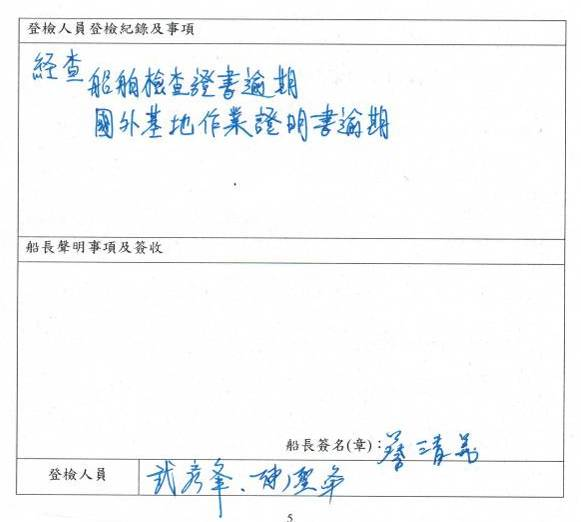 登檢人員登檢紀錄及事項
經查船舶檢查證書逾期
國外基地作業證明書逾期
船長聲明事項及簽收
船長簽名(章)：
登檢人員
5